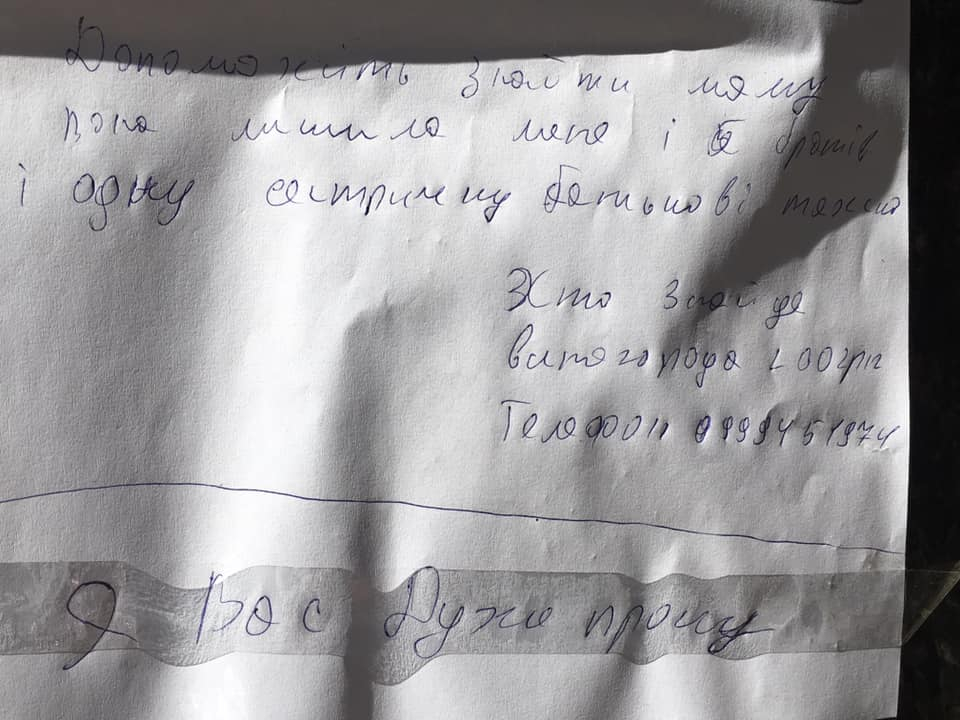 Допоможить знайти маму
вона лишила мене і братів
і одну сестричку батькові тяжко
Хто знайде
витагорода 200грн
Телефон 0999451974
Я Вас Дуже прошу